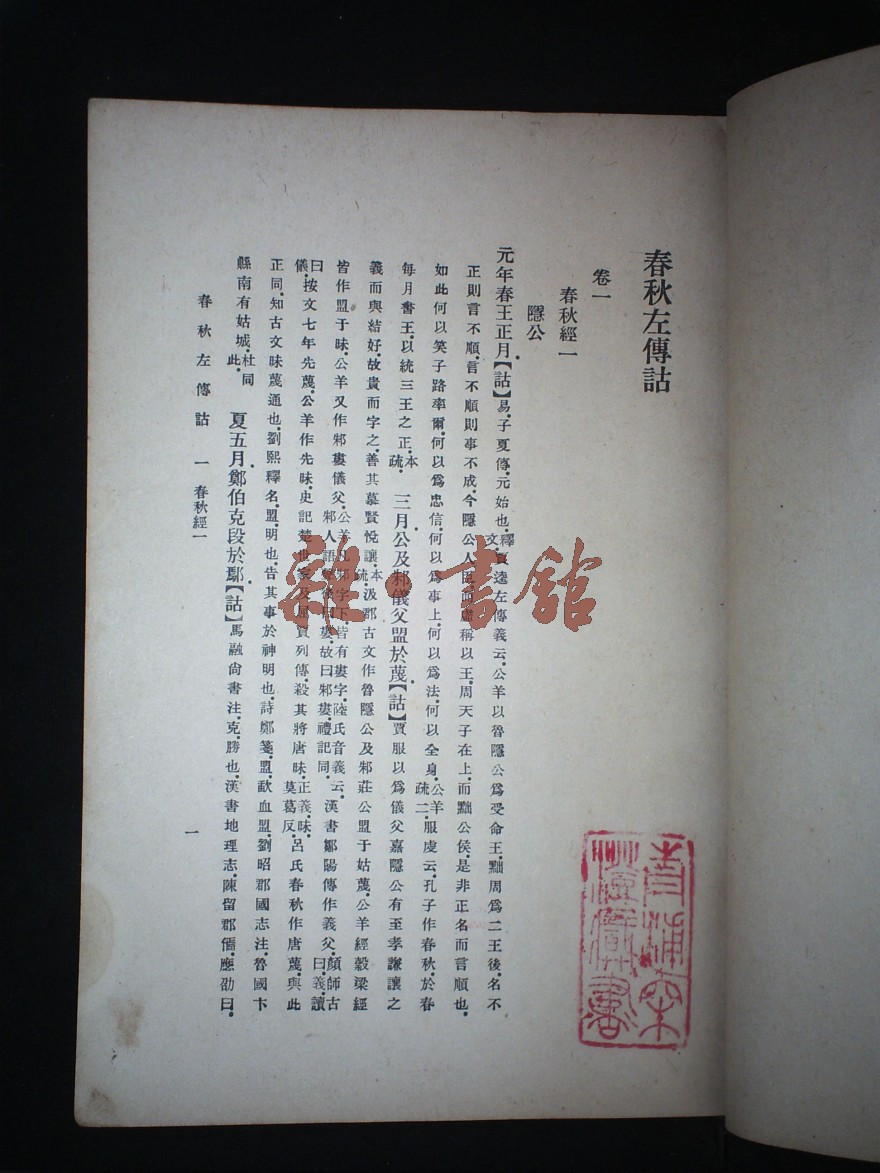 春秋左傳詁
卷一
春秋經一
隱公
元年春王正月.【詁】易.子夏傳.元始也.釋文.賈逵左傳義云.公羊以魯隱公爲受命王.黜周爲二王後.名不
正則言不順.言不順則事不成.今隱公人臣.而虛稱以王.周天子在上.而黜公侯.是非正名而言順也.
如此何以笑子路率爾.何以爲忠信.何以爲事上.何以爲法.何以全身.公羊疏二.服虔云.孔子作春秋.於春
每月書王.以統三王之正.本疏.三月公及邾儀父盟於蔑.【詁】賈服以爲儀父嘉隱公有至孝謙讓之
義而與結好.故貴而字之.善其慕賢悅讓.本疏.汲郡古文作魯隱公及邾莊公盟于姑蔑.公羊經穀梁經
皆作盟于昧.公羊又作邾婁儀父.公羊凡邾字下.皆有婁字.陸氏音義云.邾人語聲後曰婁.故曰邾婁.禮記同.漢書鄒陽傳作義父.顏師古曰.義.讀
儀.按文七年先蔑.公羊作先昧.史記楚世家及屈賈列傳.殺其將唐昧.正義.昧.莫葛反.呂氏春秋作唐蔑.與此
正同.知古文昧蔑通也.劉熙釋名.盟.明也.告其事於神明也.詩鄭箋.盟.歃血盟.劉昭郡國志注.魯國卞
縣南有姑城.杜同此.夏五月.鄭伯克段於鄢.【詁】馬融尙書注.克.勝也.漢書地理志.陳留郡傿.應劭曰.
春秋左傳詁 一 春秋經一
一
雜·書館